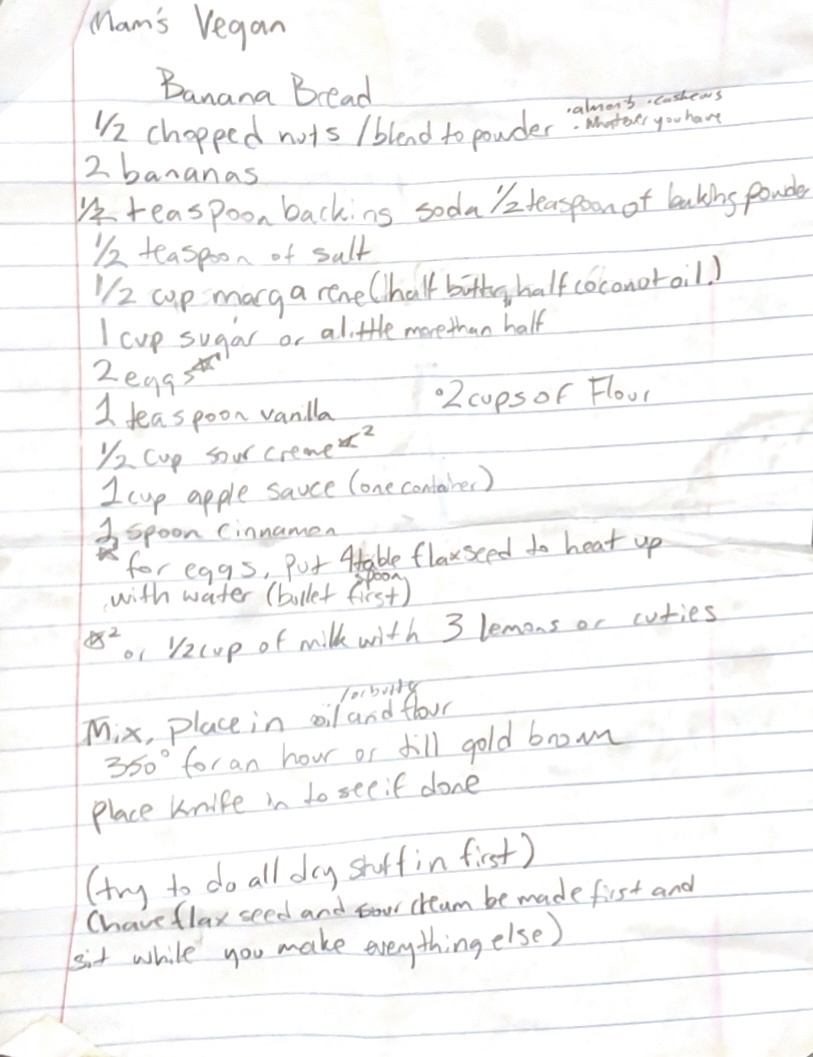 Mam's Vegan
Banana Bread
1/2 chopped nuts /blend to powder
·almonds ·cashews
·Whatever you have
2 bananas
1/2 teaspoon backing soda 1/2 teaspoon of baking powder
1/2 teaspoon of salt
1/2 cup margarene (half butter, half coconot oil.)
1 cup sugar or a little more than half
2 eggs*1
1 teaspoon vanilla
·2 cups of Flour
1/2 cup sour creme*2
1 cup apple sauce (one container)
1 spoon cinnamen
* for eggs, put 4 table spoon flaxseed to heat up
with water (bullet first)
*2 or 1/2 cup of milk with 3 lemons or cuties
Mix, place in oil /or butty and flour
350° for an hour or till gold brown
place knife in to see if done
(try to do all dry stuff in first)
(have flax seed and sour creum be made first and
sit while you make everything else)